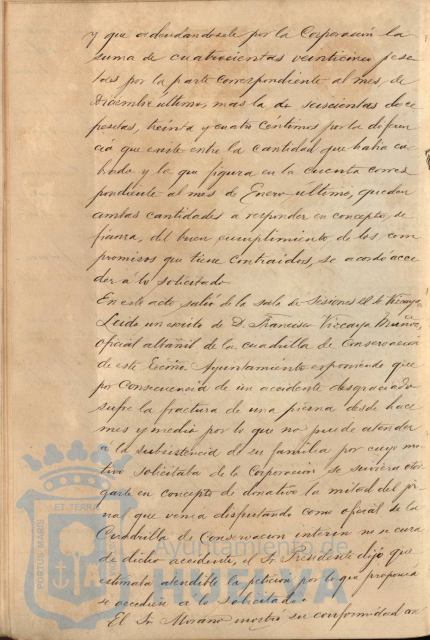 y que adeudándosele por la Corporación la
suma de cuatrocientas veinticinco pese
tas por la parte correspondiente al mes, de
Diciembre último, mas la de seiscientas doce
pesetas, treinta y cuatro céntimos por la diferen
cia que existe entre la cantidad que había co
brado y la que figura en la cuenta corres
pondiente al mes de Enero último, quedan
ambas cantidades a responder en concepto, de
fianza, del buen cumplimiento de los com
promisos que tiene contraidos, se acordó acce
der á lo solicitado
En este acto salió de la sala de Sesiones el Sr. Vizcaya
Leido un escrito de D. Francisco Vizcaya Muñoz,
oficial albañil de la cuadrilla de Conservación
de este Excmo. Ayuntamiento exponiendo que
por consecuencia de un accidente desgraciado
sufre la fractura de una pierna desde hace
mes y medio por lo que no puede atender
a la subsistencia de su familia por cuyo mo
tivo solicitaba de la Corporación, se sirviera otor
garle en concepto de donativo la mitad del jor
nal que venia disfrutando como oficial de la
Cuadrilla de Conservación interin no se cura
de dicho accidente, el Sr. Presidente dijo que
estimaba atendible la petición por lo que proponía
se accediera a lo solicitado
El Sr. Morano mostró su conformidad an
PORTUS MARIS ET TERRAE
Ayuntamiento de
HUELVA